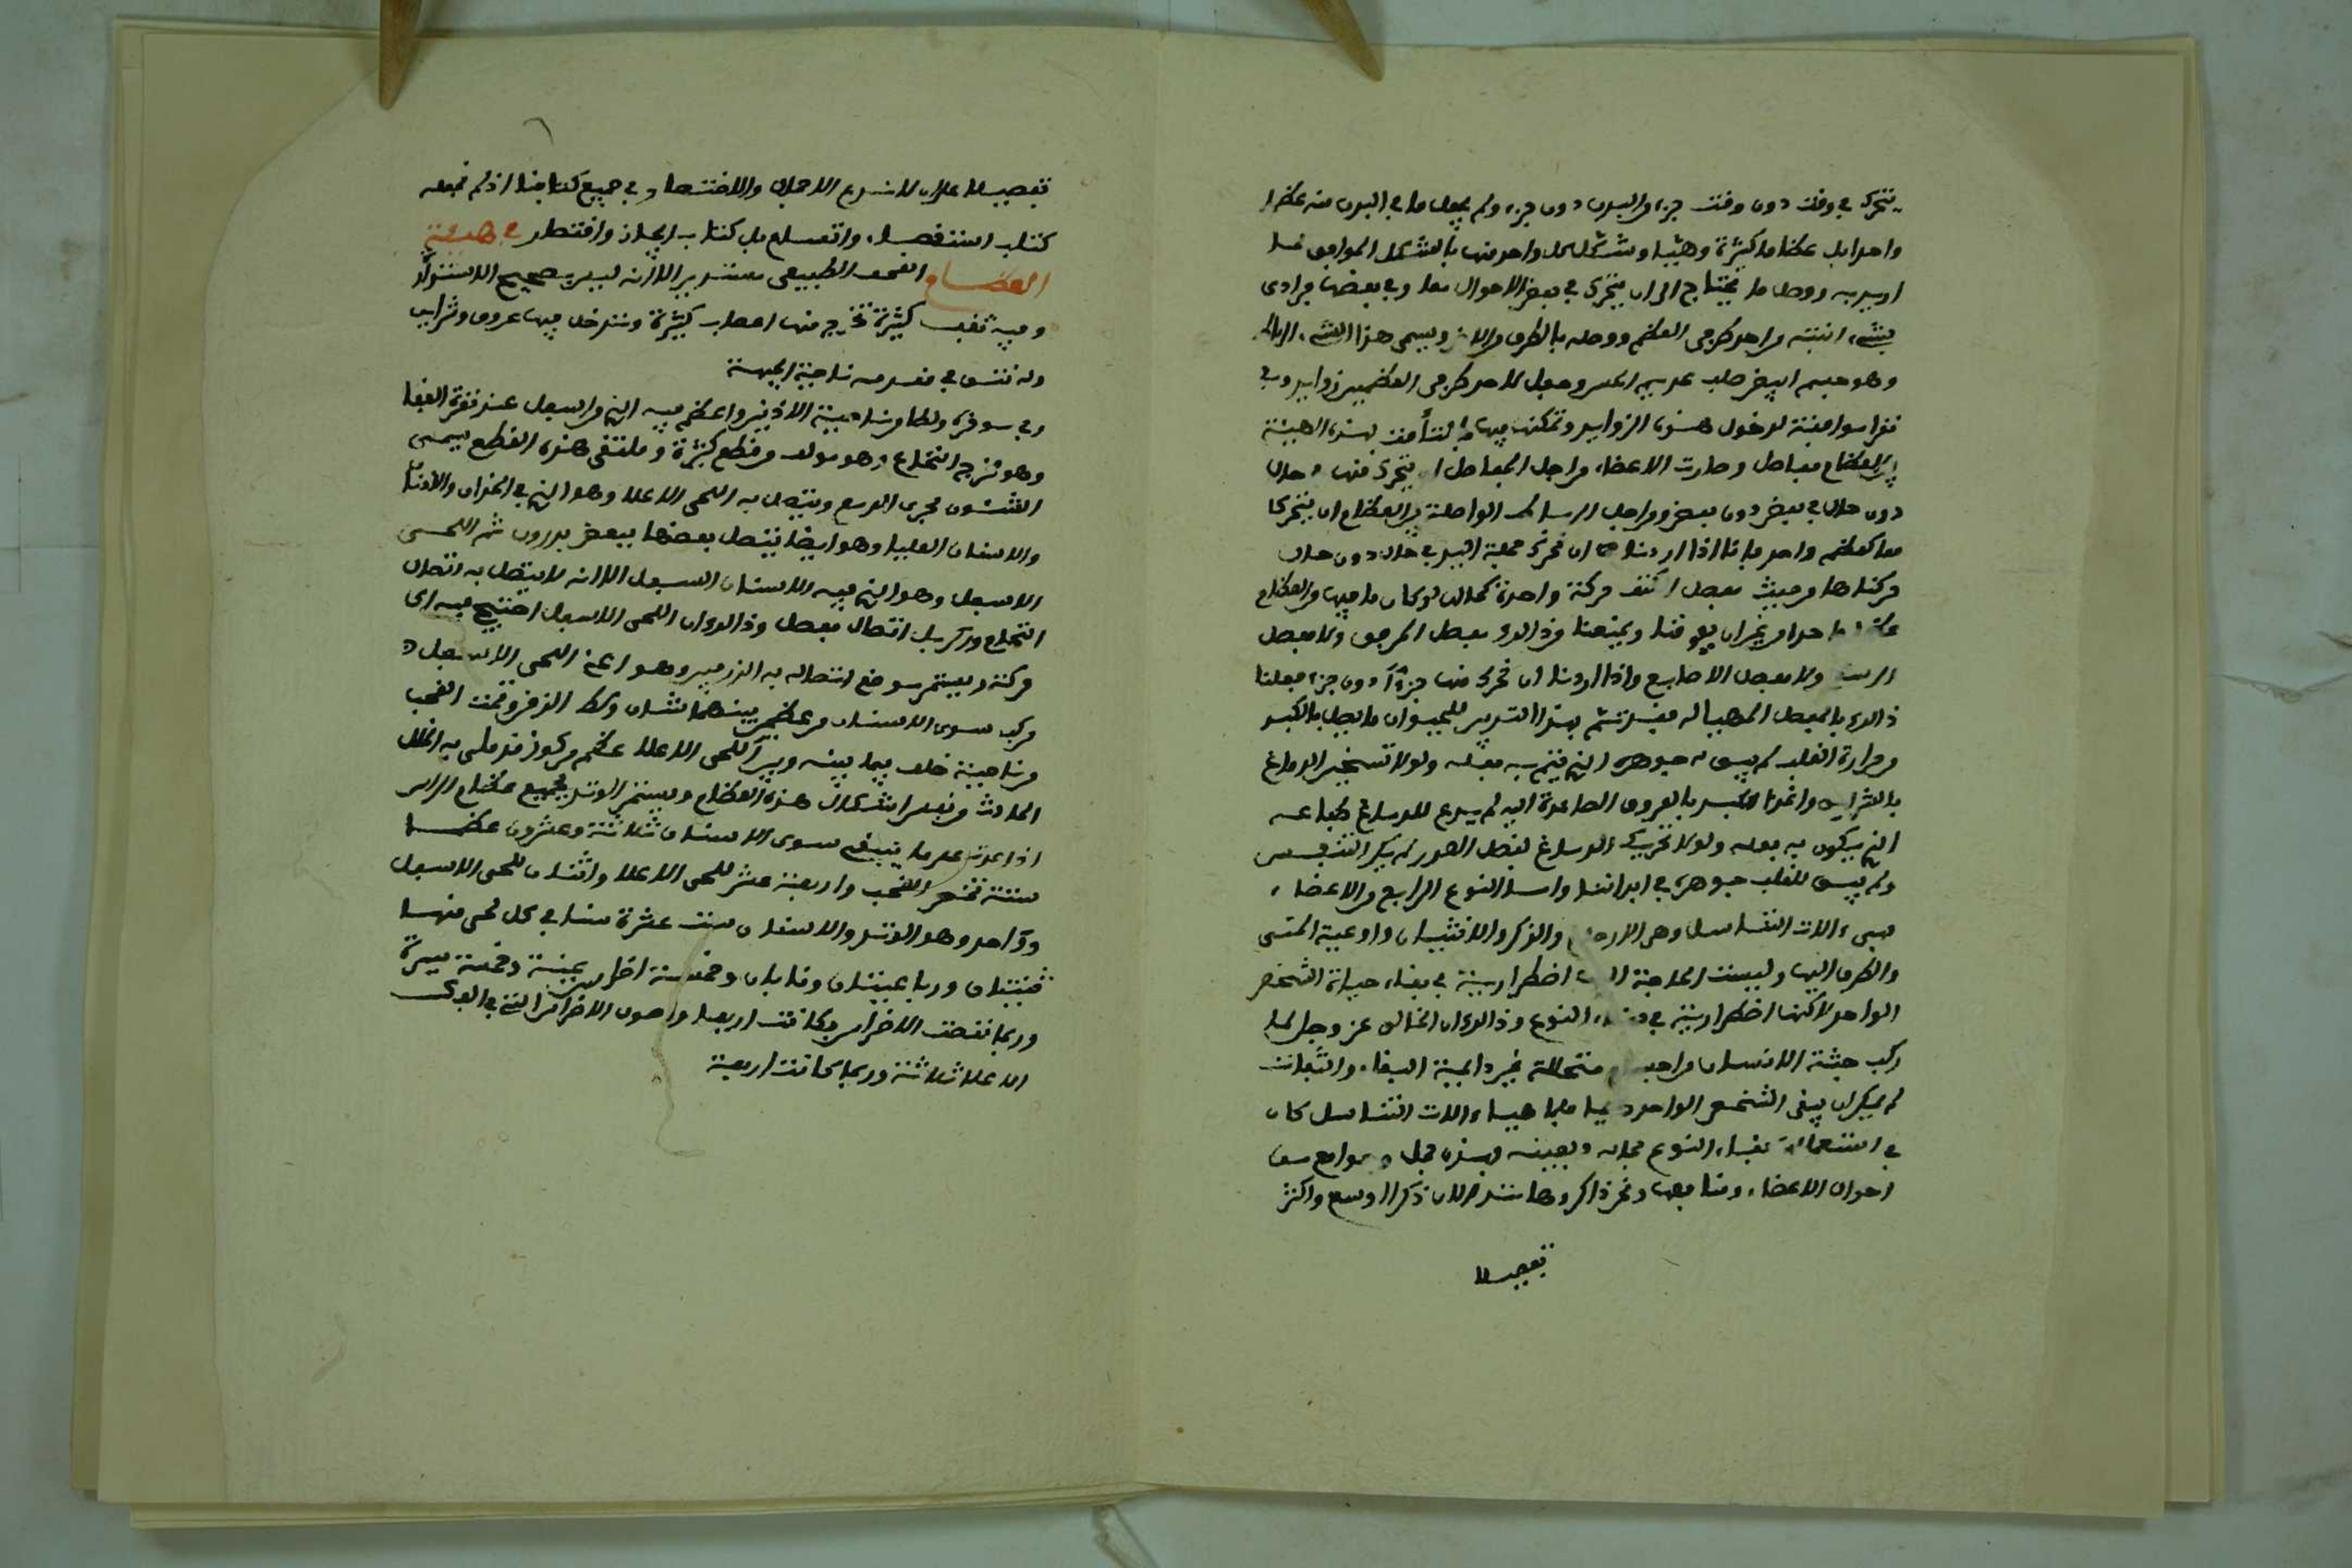 يتحرك في وقت دون وقت جزء من البدن دون جزء ولم يجعل ما في البدن منه عظما
واحدا بل عظاما كثيرة وهيا وشكل كل واحد منها بالشكل الموافق لما
اريد به ووصل ما يحتاج الى ان يتحرك في بعض الاحوال معا وفي بعضها فرادى
بشيء انبته من احد طرفي العظم ووصله بالطرف الاخر ويسمى هذا الشيء الرباط
وهو جسم ابيض صلب عديم الحس وجعل لاحد طرفي العظمين زوايد وفي
نقرا موافقة لدخول هذه الزوايد وتمكنها فيها فالتأمت بهذه الهيئة
بين العظام مفاصل وصارت الاعضاء من اجل المفاصل ان يتحرك منها
دون حال في بعض دون بعض ومن اجل الرباطات الواصلة بين العظام ان يتحركا
معا كعظم واحد فانا اذا اردنا ان نحرك جملة اليد في حال دون حال
حركناها من حيث مفصل الكتف حركة واحدة كحالها لو كان ما فيها من العظام
عظما واحدا من غير ان يعوقنا ويمنعنا من ذالك مفصل المرفق ولا مفصل
الرسغ ولا مفصل الاصابع واذا اردنا ان نحرك منها جزءا دون جزء فعلنا
ذالك بالمفصل المهيا له فقد تم بهذا التدبير للحيوان ما يصل بالكبد
وحرارة القلب لم يبق له جوهره الذي يتم به فعله ولولا تسخين الدماغ
بالشرايين واغذاء الكبد بالعروق الصاعدة اليه لم يدم للدماغ طباعه
الذي يكون به فعله ولولا تحريك الدماغ لعضل الصدر لم يكن التنفس
ولم يبق للقلب جوهره في ابداننا واما النوع الرابع من الاعضاء
فهي ءالات التناسل وهي الارحام والذكر والانثيان واوعية المني
والطرق اليها وليست الحاجة اليها اضطرارية في بقاء حياة الشخص
الواحد لاكنها اضطرارية في بقاء النوع وذالك ان الخالق عز وجل لما
ركب جثة الانسان من اجسام متحللة غير دايمة البقاء والثبات
لم يمكن ان يبقى الشخص الواحد دايما فلما هيا ءالات التناسل كان
في استعمالها بقاء النوع بحاله وبعينه فهذه جمل وجوامع من
احوال الاعضاء ومنافعها ونحن ذاكروها من ذي الان ذكرا اوسع واكثر
تفصيلا
تفصيلا على ان لا ندع الاجمال والاختصار في جميع كتابنا اذ لم نجعله
كتاب استقصاء واتساع بل كتاب ايجاز واقتصار في هيئة
العظام القحف الطبيعي مستدير الا انه ليس بصحيح الاستدارة
وفيه ثقب كثيرة تخرج منها اعصاب كثيرة وتدخل فيها عروق وشرايين
وله نتو في مقدمه من ناحية الجبهة
وفي موخره ولطا من ناحية الاذنين واعظم فيه الذي من اسفل عند نقرة القفا
وهو مخرج النخاع وهو مولف من قطع كثيرة وملتقى هذه القطع يسمى
الشئون مجرى الدمع ويتصل به اللحى الاعلا وهو الذي فيه الخدان والاذنان
والاسنان العليا وهو ايضا يتصل بعضها ببعض بدروز ثم اللحى
الاسفل وهو الذي فيه الاسنان السفل الا انه لا يتصل به اتصال
التحام ودرز بل اتصال مفصل وذالك ان اللحى الاسفل احتيج فيه الى
حركة ويسمى موضع اتصاله به الزرفين وهو اعني اللحى الاسفل
مركب سوى الاسنان من عظمين بينهما شان وسط الذقن وتحت القحف
من ناحية خلف فيما بينه وبين اللحى الاعلا عظم مركوز قد ملي به الخلل
الحادث من تقعير اشكال هذه العظام ويسمى الوتد فجميع عظام الراس
اذا عدت على ما ينبغي سوى الاسنان ثلاثة وعشرون عظما
ستة تخص القحف واربعة عشر للحى الاعلا واثنان للحى الاسفل
وواحد وهو الوتد والاسنان ست عشرة سنا في كل لحي منها
ثنيتان ورباعيتان ونابان وخمسة اضراس يمنة وخمسة يسرة
وربما نقصت الاضراس فكانت اربعا واصول الاضراس التي في الفك
الاعلا ثلاثة وربما كانت اربعة